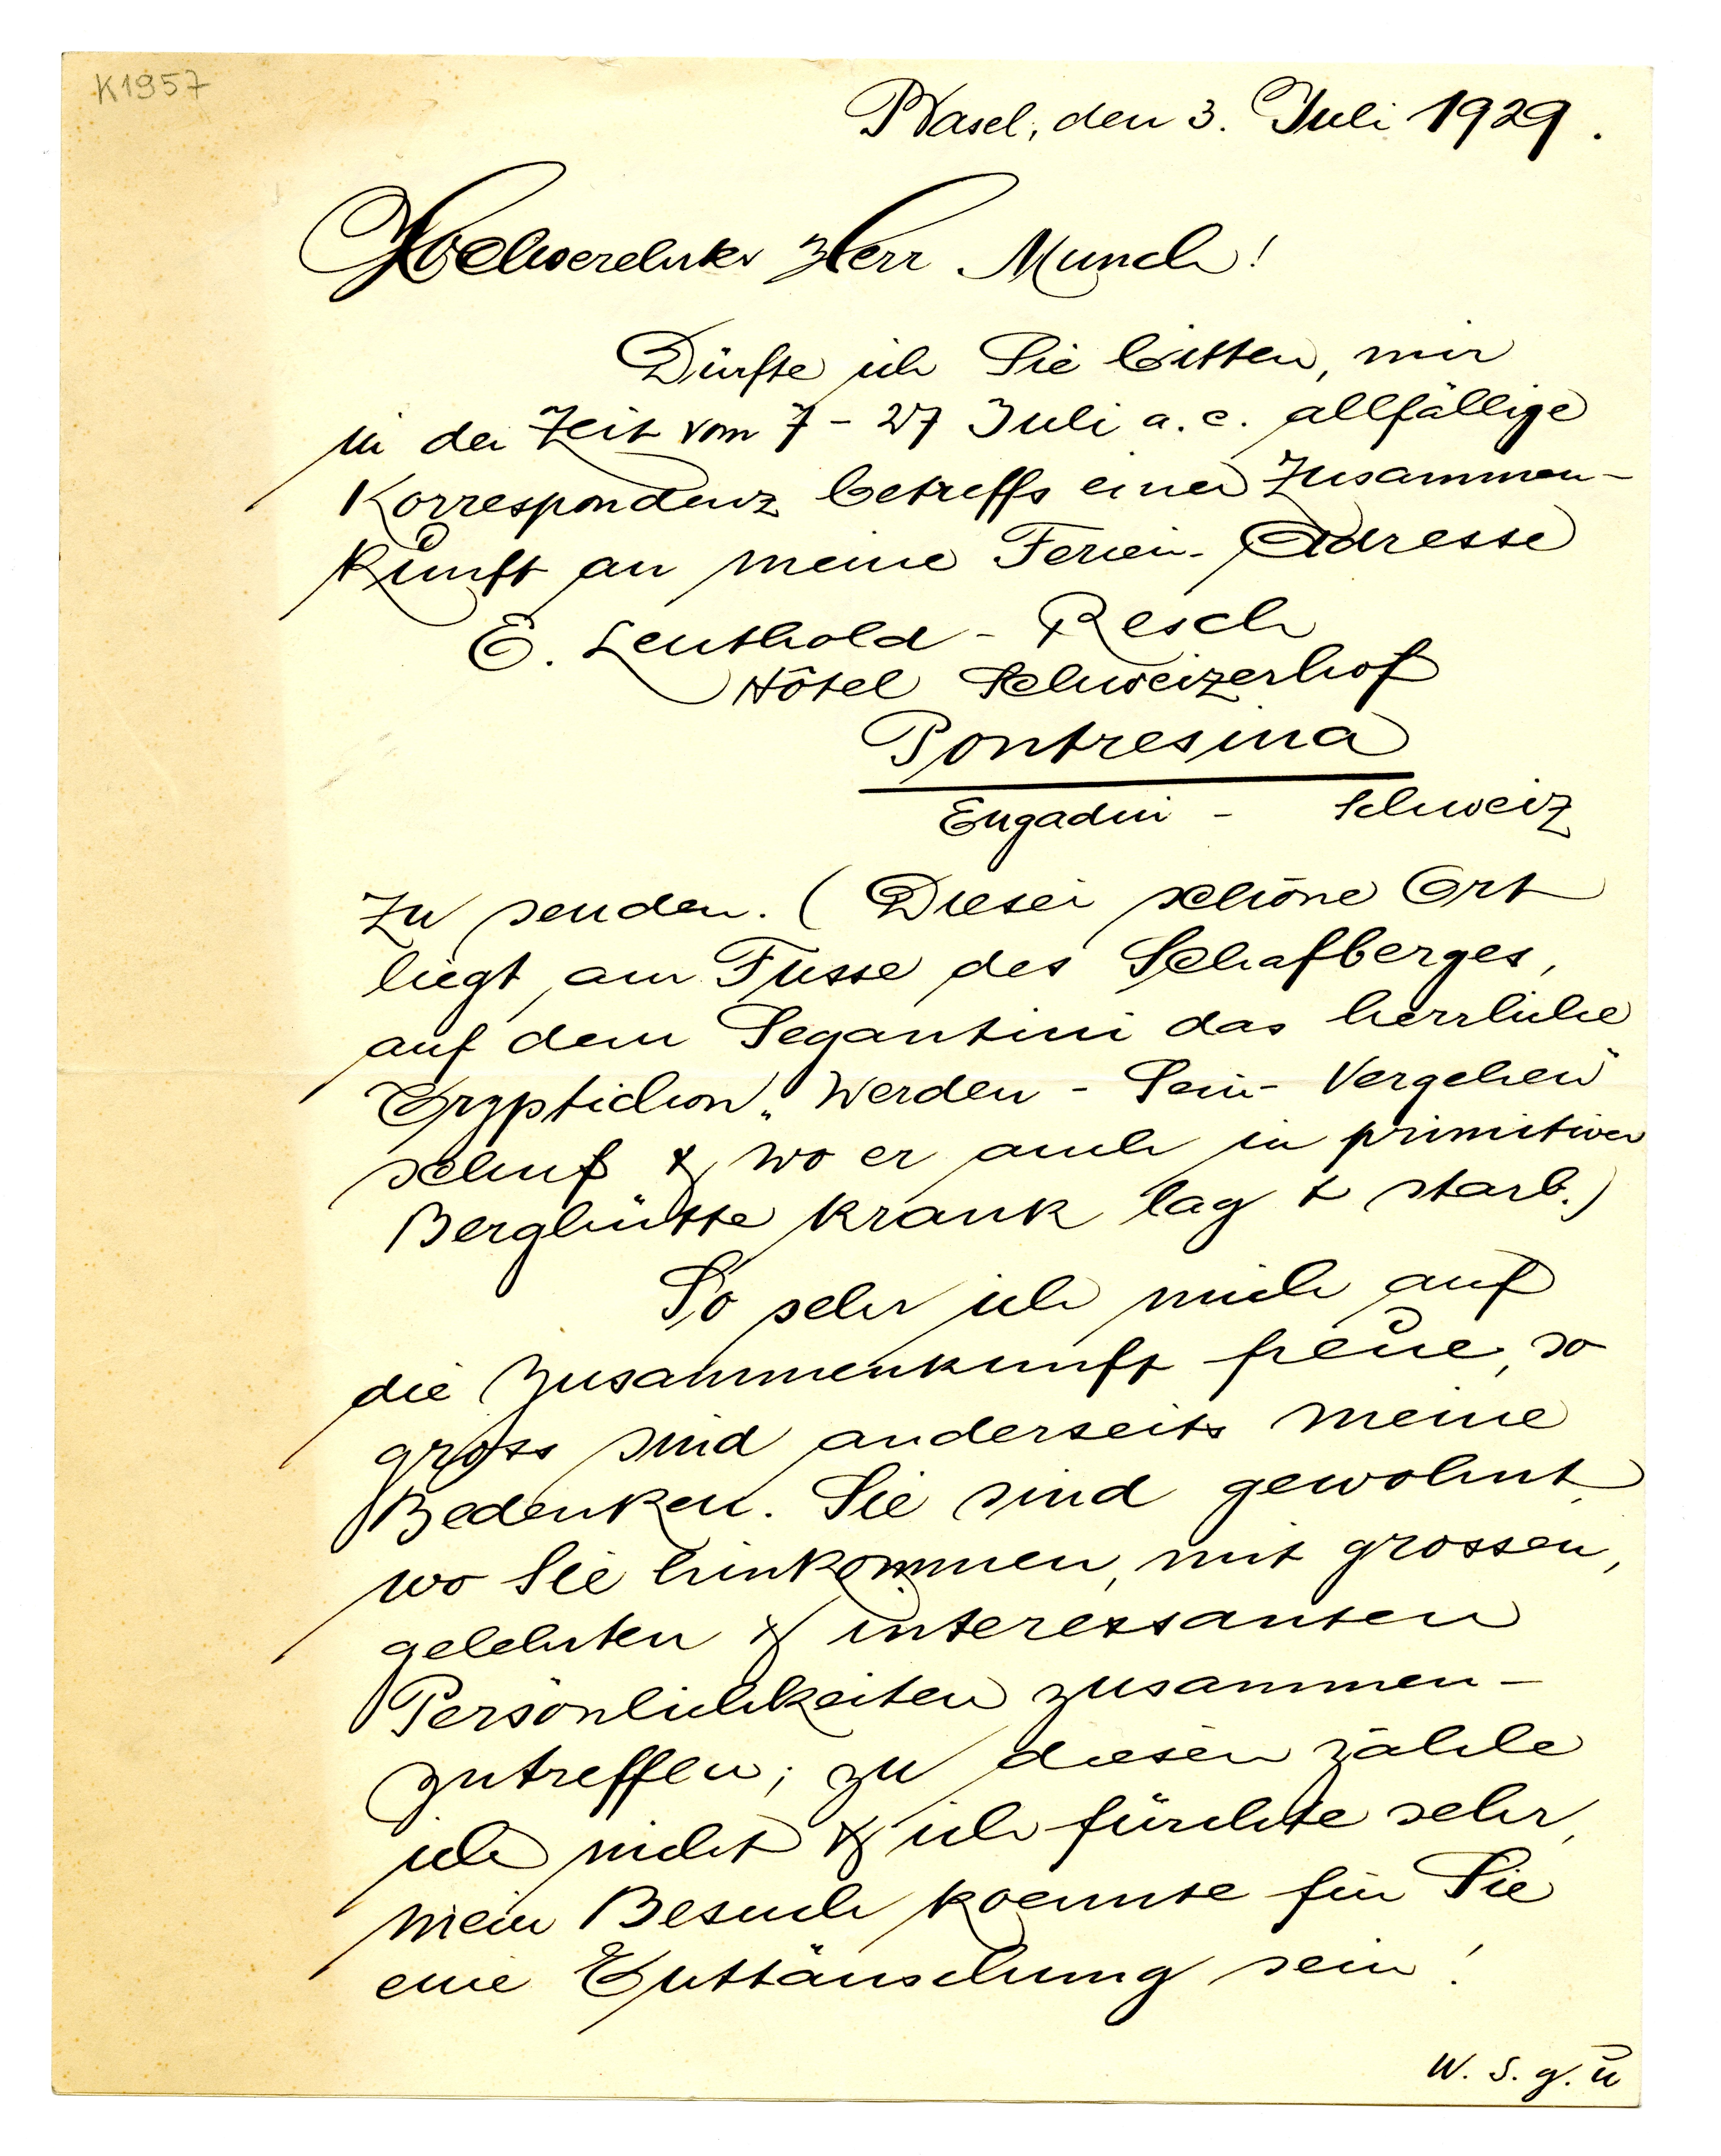 K1957
Basel, den 3. Juli 1929.
Hochverehrter Herr Munch!
Dürfte ich Sie bitten, mir
in der Zeit vom 7 - 27 Juli a. c. allfällige
Korrespondenz betreffs einer Zusammen-
kunft an meine Ferien-Adresse
E. Leuthold - Resch
Hôtel Schweizerhof
Pontresina
Engadin - Schweiz
zu senden. (Dieser schöne Ort
liegt am Fusse des Schafberges,
auf dem Segantini das herrliche
Tryptichon „Werden - Sein - Vergehen"
schuf & wo er auch in primitiver
Berghütte krank lag & starb.)
So sehr ich mich auf
die Zusammenkunft freue, so
gross sind anderseits meine
Bedenken. Sie sind gewohnt,
wo Sie hinkommen, mit grossen,
gelehrten & interessanten
Persönlichkeiten zusammen-
zutreffen; zu diesen zähle
ich nicht & ich fürchte sehr,
mein Besuch koennte für Sie
eine Enttäuschung sein!
W. S. g. ü